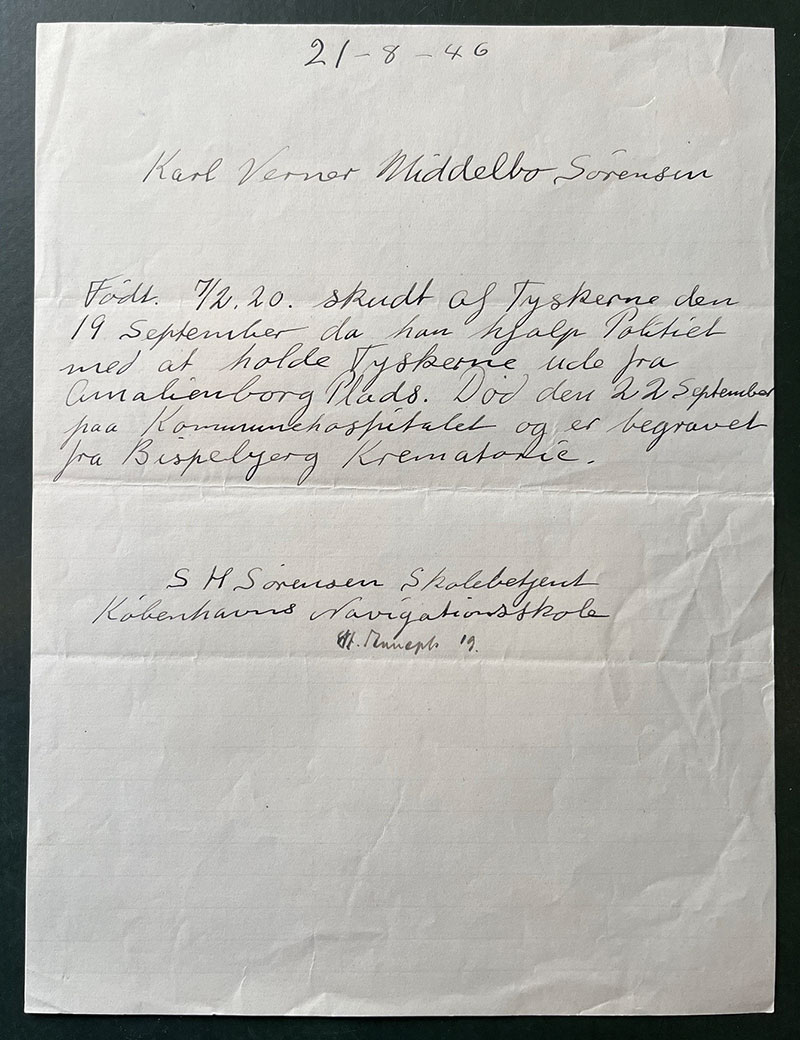 21-8-46
Karl Verner Middelbo Sørensen
Født. 7/2.20. skudt af Tyskerne den
19 September da han hjalp Politiet
med at holde Tyskerne ude fra
Amalienborg Plads. Død den 22 September
paa Kommunehospitalet og er begravet
fra Bispebjerg Krematorie.
S H Sørensen Skolebetjent
Københavns Navigationsskole
19.